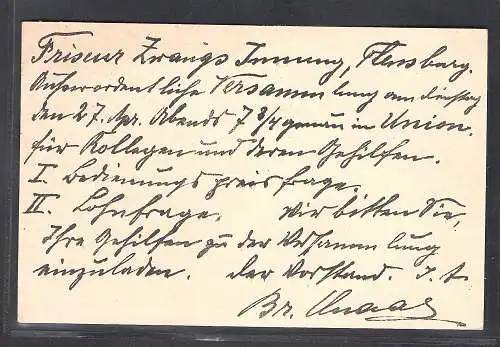 Friseur Zwangs Innung, Flensburg.
Außerordentliche Versammlung am Dienstag
den 27. Apr. Abends 7 3/4 genau in Union.
für Kollegen und deren Gehilfen.
I. Bedienungspreisfrage.
II. Lohnfrage. Wir bitten Sie,
Ihre Gehilfen zu der Versammlung
einzuladen. Der Vorstand. I. A.
Br.